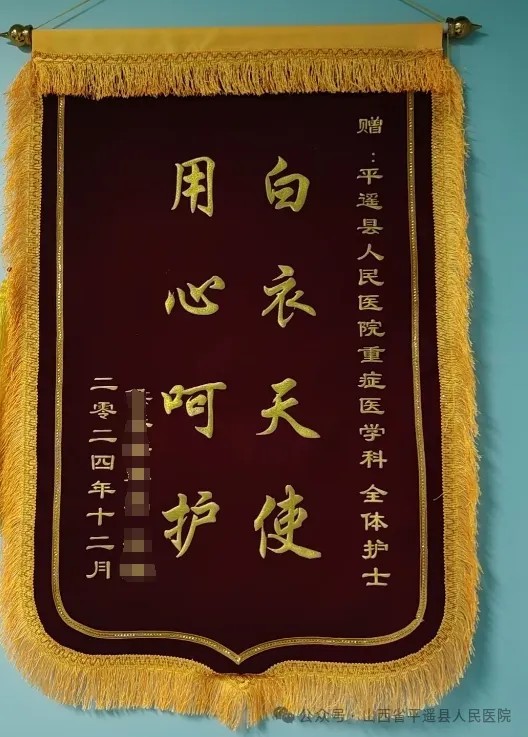 赠：平遥县人民医院重症医学科 全体护士
白衣天使
用心呵护
二零二四年十二月
公众号·山西省平遥县人民医院